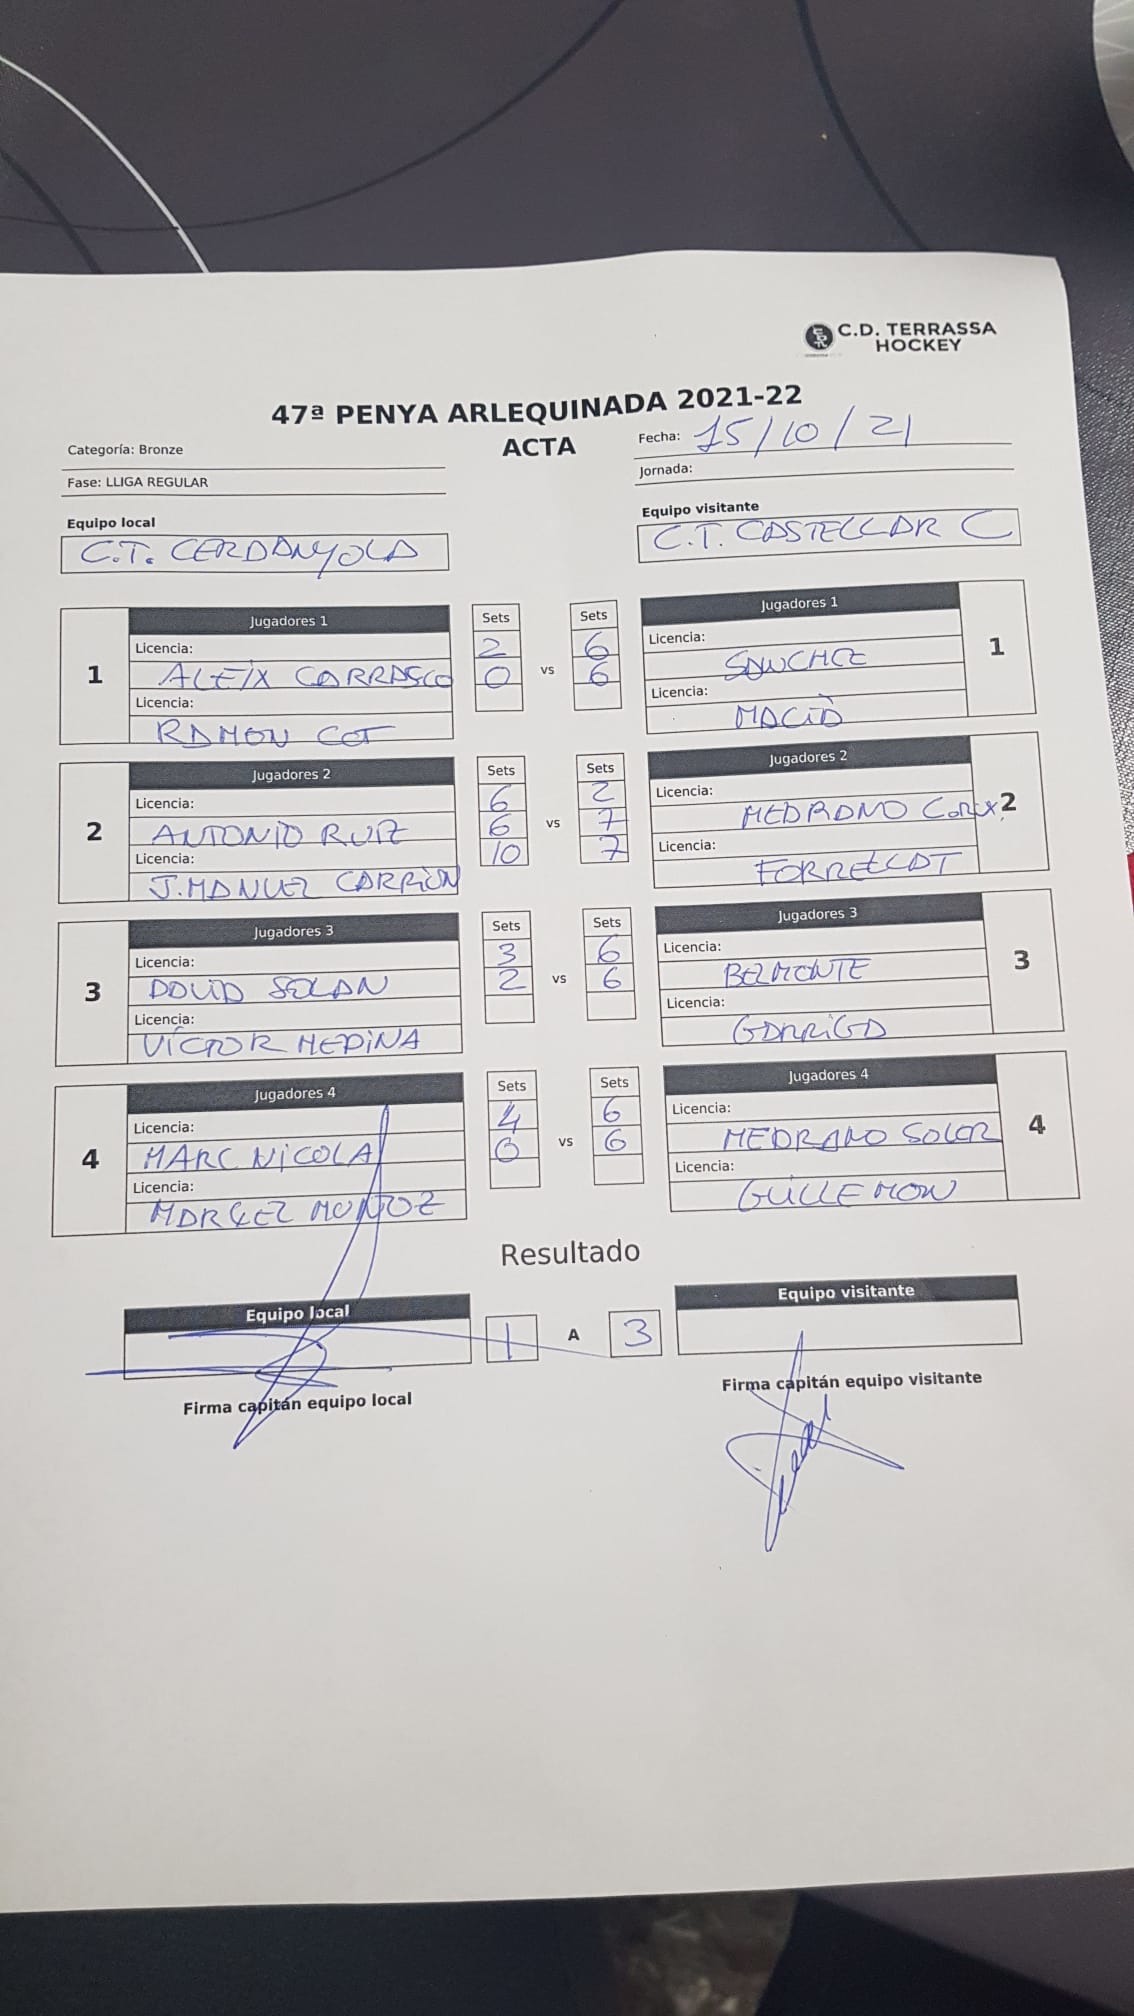 C.D. TERRASSA
HOCKEY
47ª PENYA ARLEQUINADA 2021-22
ACTA
Categoría: Bronze
Fase: LLIGA REGULAR
Fecha: 15/10/21
Jornada:
Equipo local
C.T. CERDANYOLA
Equipo visitante
C.T. CASTELLAR C
1
Jugadores 1
Licencia:
ALEIX CARRASCO
Licencia:
RAMON COT
Sets
2
0
vs
Sets
6
6
Jugadores 1
Licencia:
SANCHEZ
Licencia:
MACIÀ
1
2
Jugadores 2
Licencia:
ANTONIO RUIZ
Licencia:
J.MANUEL CARRION
Sets
6
6
10
vs
Sets
2
7
7
Jugadores 2
Licencia:
MEDRANO
Licencia:
FORRELLAT
2
3
Jugadores 3
Licencia:
DAVID SOLAN
Licencia:
VÍCTOR MEDINA
Sets
3
2
vs
Sets
6
6
Jugadores 3
Licencia:
BELMONTE
Licencia:
GARRIGA
3
4
Jugadores 4
Licencia:
MARC NICOLA
Licencia:
MUÑOZ
Sets
4
vs
Sets
6
6
Jugadores 4
Licencia:
MEDRANO SOLER
Licencia:
GUILLEMON
4
Resultado
Equipo local
1
A
3
Equipo visitante
Firma capitán equipo local
Firma capitán equipo visitante